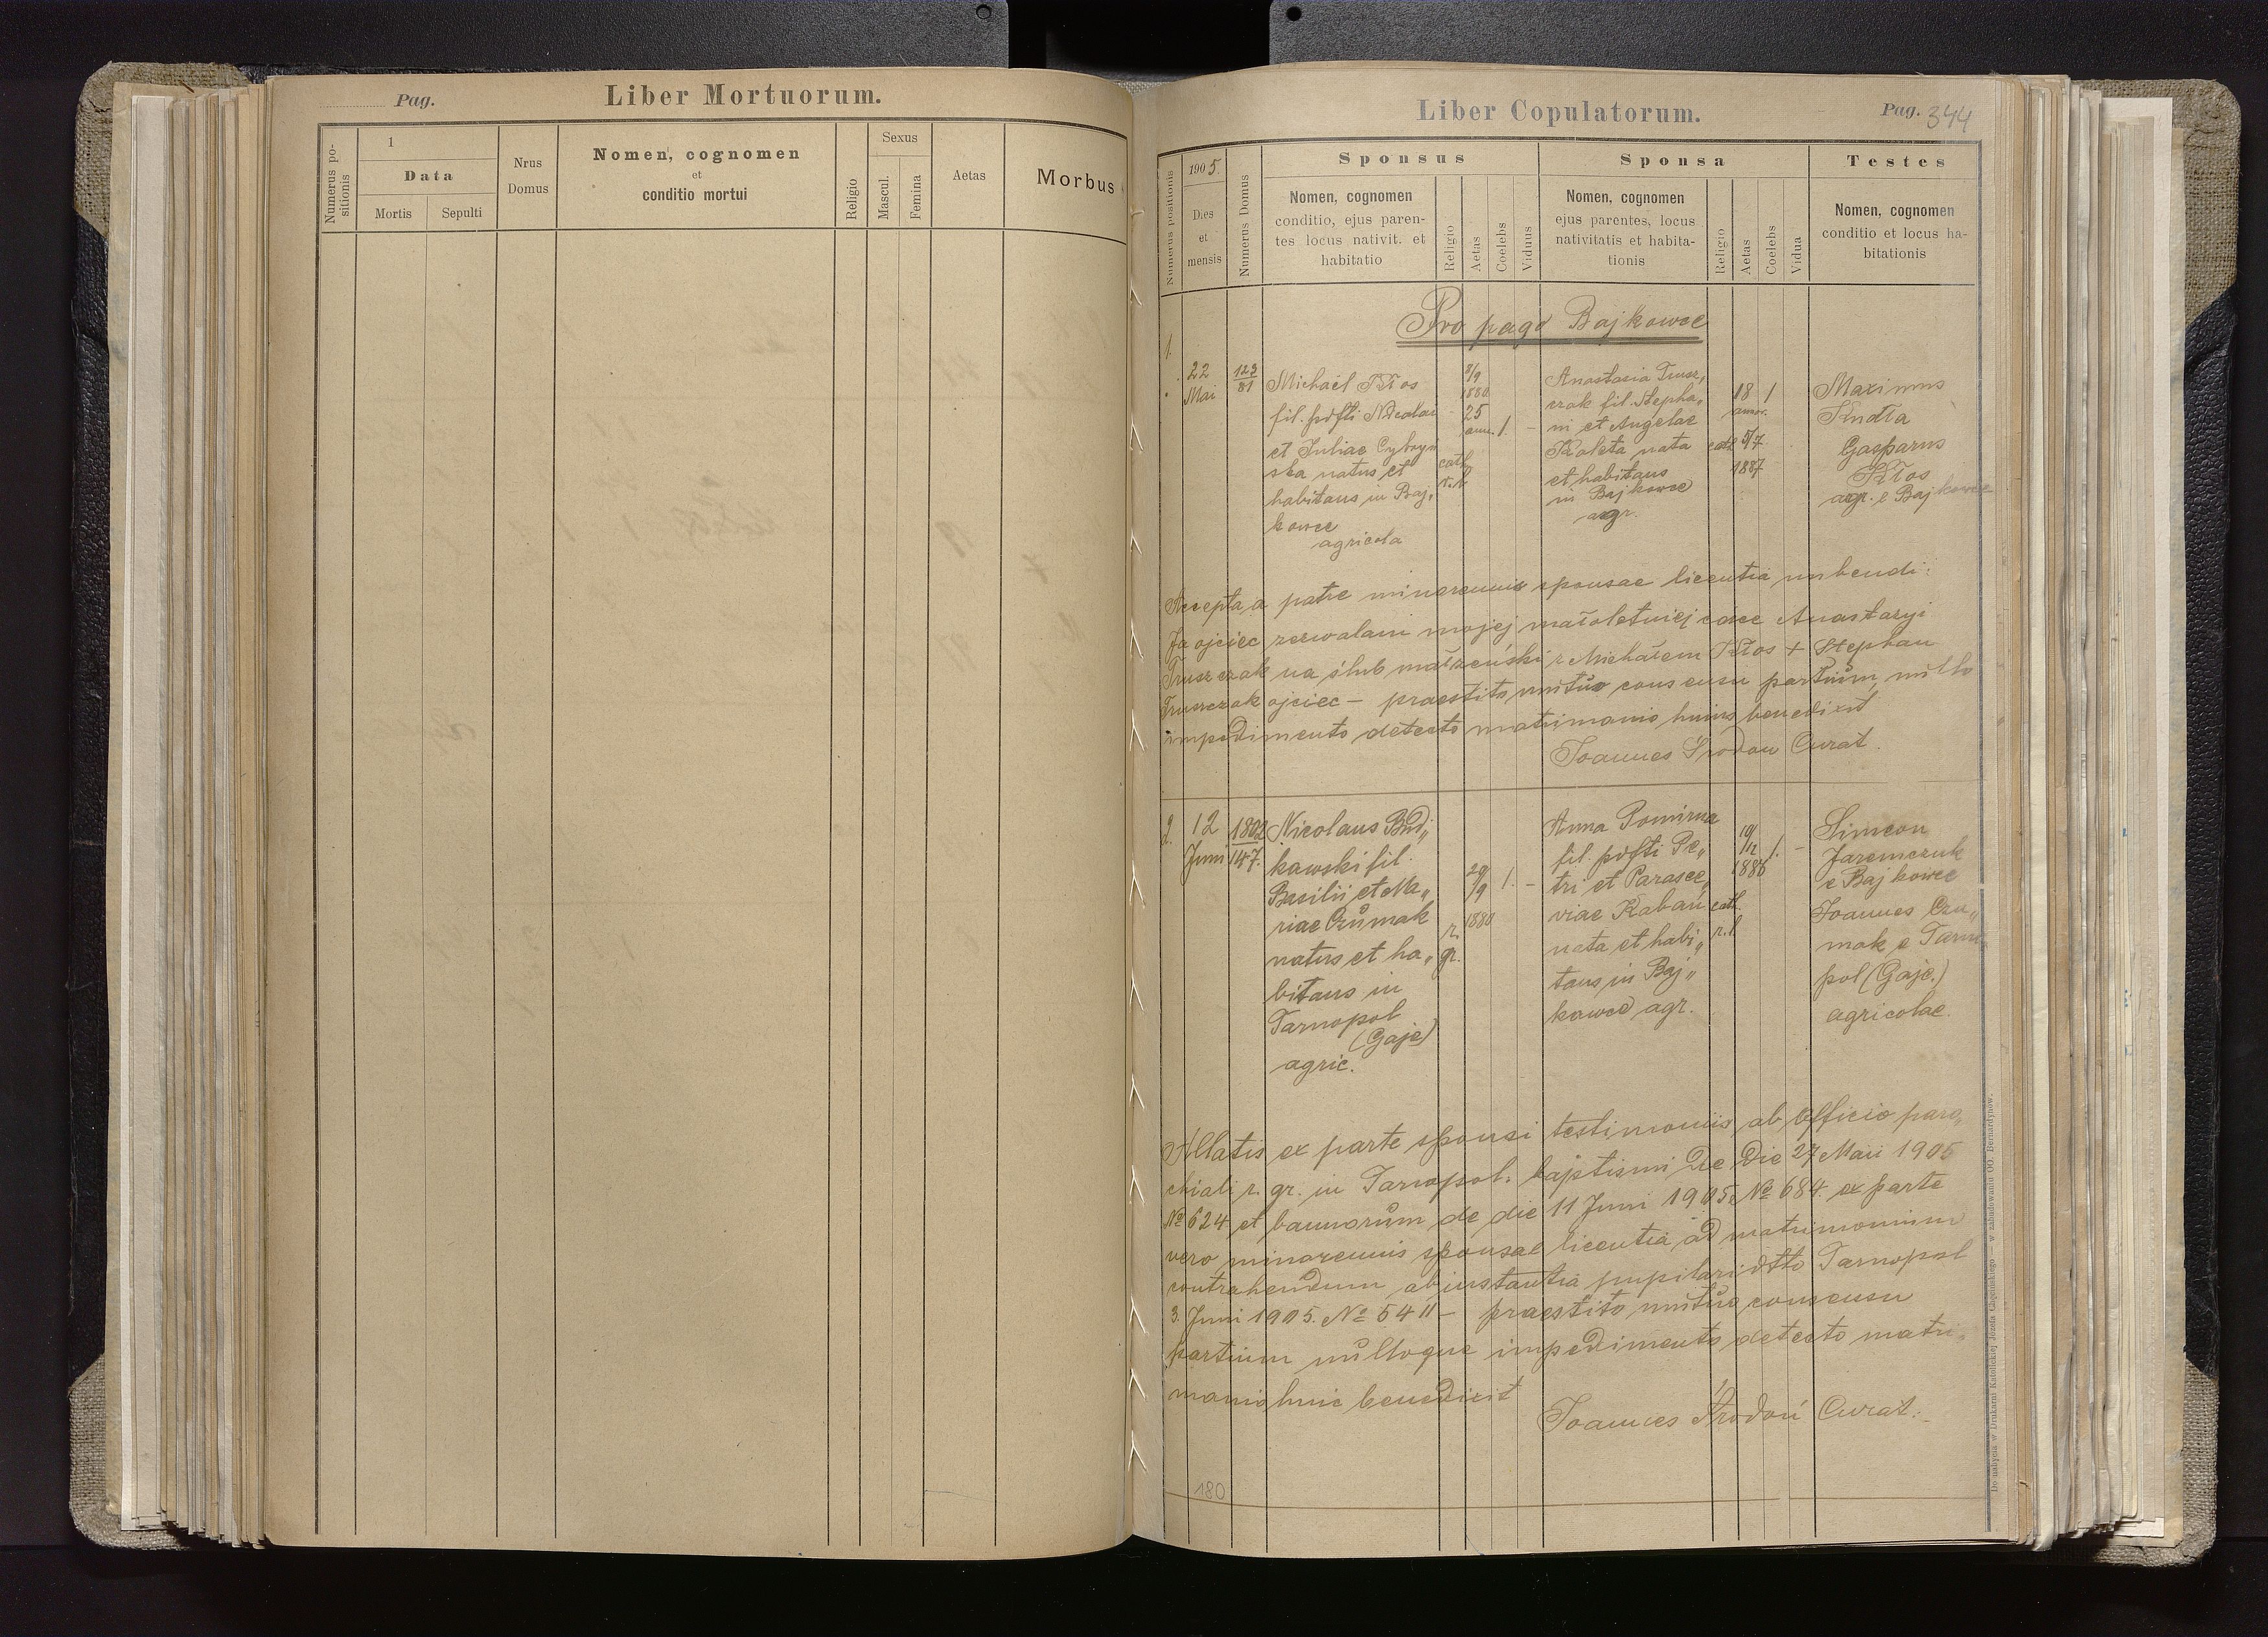 Pag.
Liber Mortuorum.
Numerus po-
sitionis
1
Data
Mortis
Sepulti
Nrus
Domus
Nomen, cognomen
et
conditio mortui
Religio
Sexus
Mascul.
Femina
Aetas
Morbus
Liber Copulatorum.
Pag. 344
Numerus positionis
1905.
Dies
et
mensis
Numerus Domus
Sponsus
Nomen, cognomen
conditio, ejus paren-
tes locus nativit. et
habitatio
Religio
Aetas
Coelebs
Viduus
Sponsa
Nomen, cognomen
ejus parentes, locus
nativitatis et habita-
tionis
Religio
Aetas
Coelebs
Vidua
Testes
Nomen, cognomen
conditio et locus ha-
bitationis
Pro pago Bajkowce
1.
22
Mai
123
81
Michaël Kłos
fil. pdfti Nicolai
et Juliae Cybryń
ska natus et
habitans in Baj„
kowce
agricola
cath.
r. l.
8/9
1880
25
ann.
1.
-
Anastasia Trusz„
czak fil. Stepha„
ni et Angelae
Koleta nata
et habitans
in Bajkowce
agr.
cath.
18
annor.
5/7
1887
1
Maximus
Kindla
Gasparus
Kłos
agr. e Bajkowce
Accepta a patre minorennis sponsae licentia nubendi:
Ja ojciec zezwalam mojej małoletniej córce Anastazyi
Truszczak na ślub małżeński z Michałem Kłos + Stephan
Truszczak ojciec — praestito mutuo consensu partium, nullo
impedimento detecto matrimonio huius benedixit
Joannes Środoń Curat.
2.
12
Juni
1802
147.
Nicolaus Bud„
kowski fil.
Basilii et Ma„
riae Czumak
natus et ha„
bitans in
Tarnopol
(Gaje)
agric.
r.
gr.
29
/9
1880
1.
-
Anna Pomirna
fil. pdfti Pe„
tri et Parasce„
viae Kabań
nata et habi„
tans in Baj„
kowce agr.
cath.
r. l.
19/
12
1886
1.
-
Simeon
Jaremczuk
e Bajkowce
Joannes Czu„
mak e Tarno„
pol (Gaje.)
agricolae.
Allatis ex parte sponsi testimoniis ab Officio paro„
chiali r. gr. in Tarnopol: baptismi de die 27 Mai 1905
№ 624 et bannorum de die 11 Juni 1905 № 684. ex parte
vero minorennis sponsae licentia ad matrimonium
contrahendum ab instantia pupilari dtto Tarnopol
3. Juni 1905. № 5411 — praestito mutuo consensu
partium nulloque impedimento detecto matri„
monio huic benedixit
Joannes Środoń Curat.
180
Do nabycia w Drukarni Katolickiej Józefa Chęcińskiego — w zabudowaniu OO. Bernardynów.